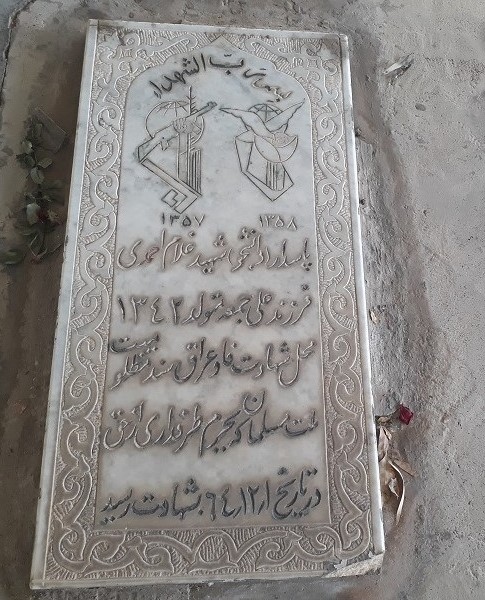 بسم رب الشهداء
۱۳۵۷ ۱۳۵۸
پاسدار افتخاری شهید غلام احمدی
فرزند علی جمعه متولد ۱۳۴۲
محل شهادت فاو عراق سند مظلومیت
ملت مسلمان که بجرم طرفداری از حق
در تاریخ ۶۴٫۱۲٫۱ بشهادت رسید